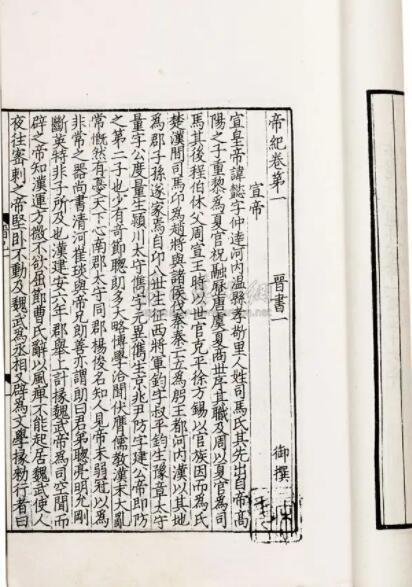 帝紀卷第一　晉書一　御撰
宣帝
宣皇帝諱懿字仲達河内温縣孝敬里人姓司馬氏其先出自帝高
陽之子重黎為夏官祝融歷唐虞夏商世序其職及周以夏官為司
馬其後程伯休父周宣王時以世官克平徐方錫以官族因而為氏
楚漢間司馬卬為趙將與諸侯伐秦秦亡立為殷王都河内漢以其地
為郡子孫遂家焉自卬八世生征西將軍鈞字叔平鈞生豫章太守
量字公度量生潁川太守儁字元異儁生京兆尹防字建公帝即防
之第二子也少有奇節聰朗多大略博學洽聞伏膺儒教漢末大亂
常慨然有憂天下心南郡太守同郡楊俊名知人見帝未弱冠以為
非常之器尚書清河崔琰與帝兄朗善亦謂朗曰君弟聰亮明允剛
斷英特非子所及也漢建安六年郡舉上計掾魏武帝為司空聞而
辟之帝知漢運方微不欲屈節曹氏辭以風痺不能起居魏武使人
夜往密刺之帝堅卧不動及魏武為丞相又辟為文學掾敕行者曰